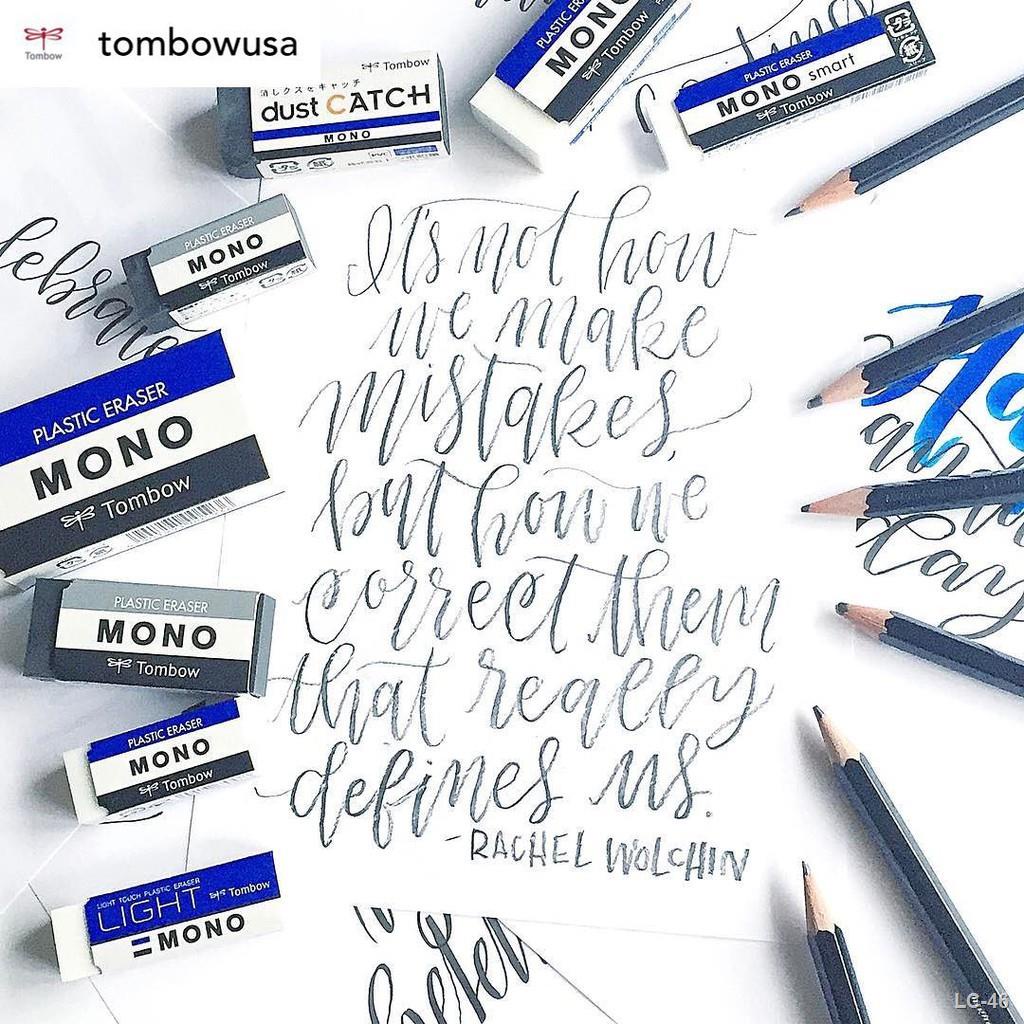 tombowusa
Tombow
Tombow
消しクズもキャッチ
dust CATCH
MONO
PVC
PLASTIC ERASER
MONO
Tombow
PLASTIC ERASER
MONO smart
Tombow
PLASTIC ERASER
MONO
Tombow
PLASTIC ERASER
MONO
Tombow
PLASTIC ERASER
MONO
Tombow
PLASTIC ERASER
MONO
Tombow
LIGHT TOUCH PLASTIC ERASER
LIGHT Tombow
MONO
It's not how
we make
mistakes,
but how we
correct them
that really
defines us.
-RACHEL WOLCHIN
LC-46